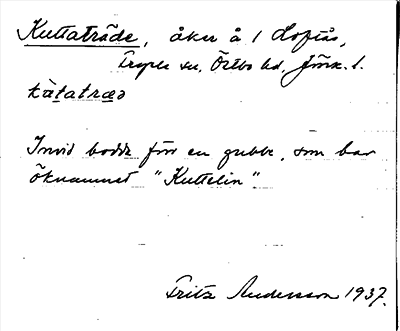 Kuttaträde, åker å 1 Hoftås,
sn. Östbo hd. Jönk. l.
Invid bodde förr en gubbe, som bar
öknamnet "Kuttelin"
Fritz Andersson 1937.